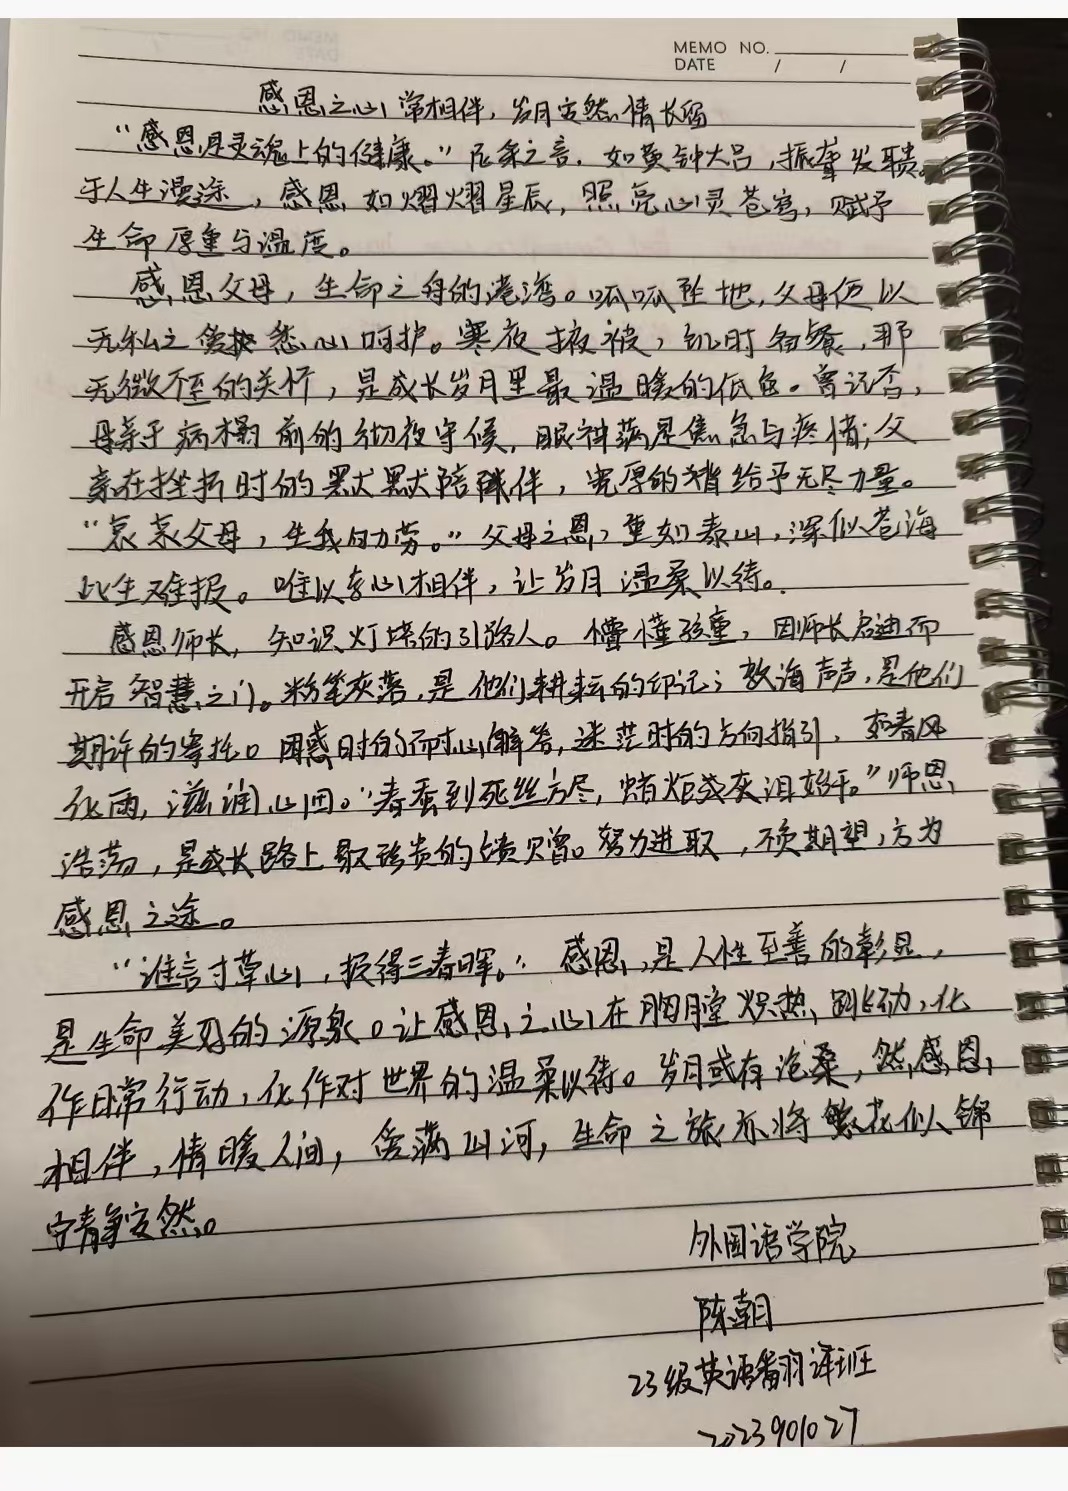 MEMO NO.
DATE / /
感恩之心常相伴，岁月安然情长留
“感恩是灵魂上的健康。”尼采之音，如黄钟大吕，振聋发聩。
于人生漫途，感恩如熠熠星辰，照亮心灵苍穹，赋予
生命厚重与温度。
感恩父母，生命之舟的港湾。呱呱坠地，父母便以
无私之爱悉心呵护。寒夜掖被，饥时备餐，那
无微不至的关怀，是成长岁月里最温暖的底色。曾记否，
母亲于病榻前的彻夜守候，眼神满是焦急与疼惜；父
亲在挫折时的默默陪伴，宽厚的背给予无尽力量。
“哀哀父母，生我劬劳。”父母之恩，重如泰山，深似苍海
此生难报。唯以孝心相伴，让岁月温柔以待。
感恩师长，知识灯塔的引路人。懵懂孩童，因师长启迪而
开启智慧之门。粉笔灰落，是他们耕耘的印记；教诲声声，是他们
期许的寄托。困惑时的耐心解答，迷茫时的方向指引，如春风
化雨，滋润心田。“春蚕到死丝方尽，蜡炬成灰泪始干。”师恩
浩荡，是成长路上最珍贵的馈赠。努力进取，不负期望，方为
感恩之途。
“谁言寸草心，报得三春晖。”感恩，是人性至善的彰显，
是生命美好的源泉。让感恩之心在胸膛炽热跳动，化
作日常行动，化作对世界的温柔以待。岁月或有沧桑，然感恩
相伴，情暖人间，爱满山河，生命之旅亦将繁花似锦
宁静安然。
外国语学院
陈朝
23级英语翻译班
2023901027